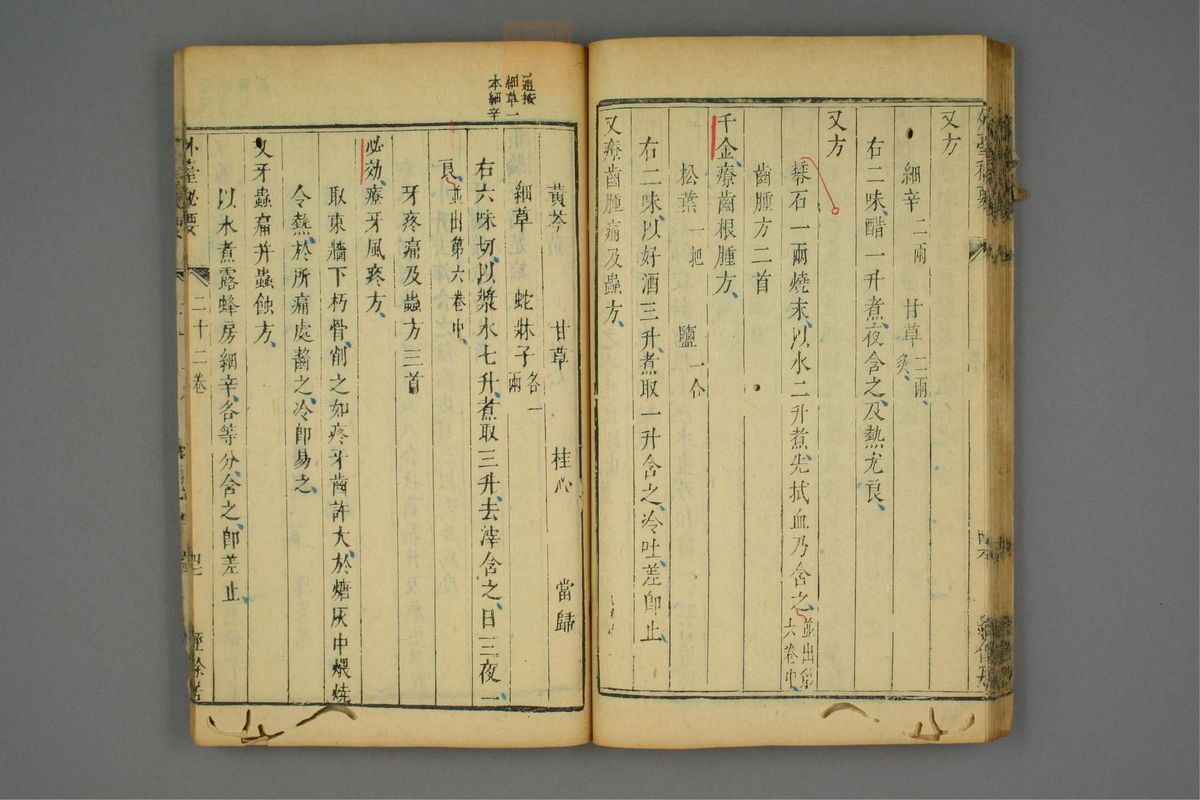 又方
細辛 二兩 甘草 二兩炙
右二味醋一升煮夜含之及熱尤良
又方
礬石一兩燒末以水二升煮先拭血乃含之並出第六卷中
齒腫方二首
千金療齒根腫方
松葉 一把 鹽 一合
右二味以好酒三升煮取一升含之冷吐差即止
又療齒腫痛及蟲方
通按
細草一
本細辛
黃芩 甘草 桂心 當歸
細草 蛇牀子 各一兩
右六味切以漿水七升煮取三升去滓含之日三夜一
良並出第六卷中
牙疼痛及蟲方三首
必効療牙風疼方
取東牆下朽骨削之如疼牙齒許大於煻灰中煨燒
令熱於所痛處齧之冷即易之
又牙蟲痛并蟲蝕方
以水煮露蜂房細辛各等分含之即差止
外臺秘要 二十二卷